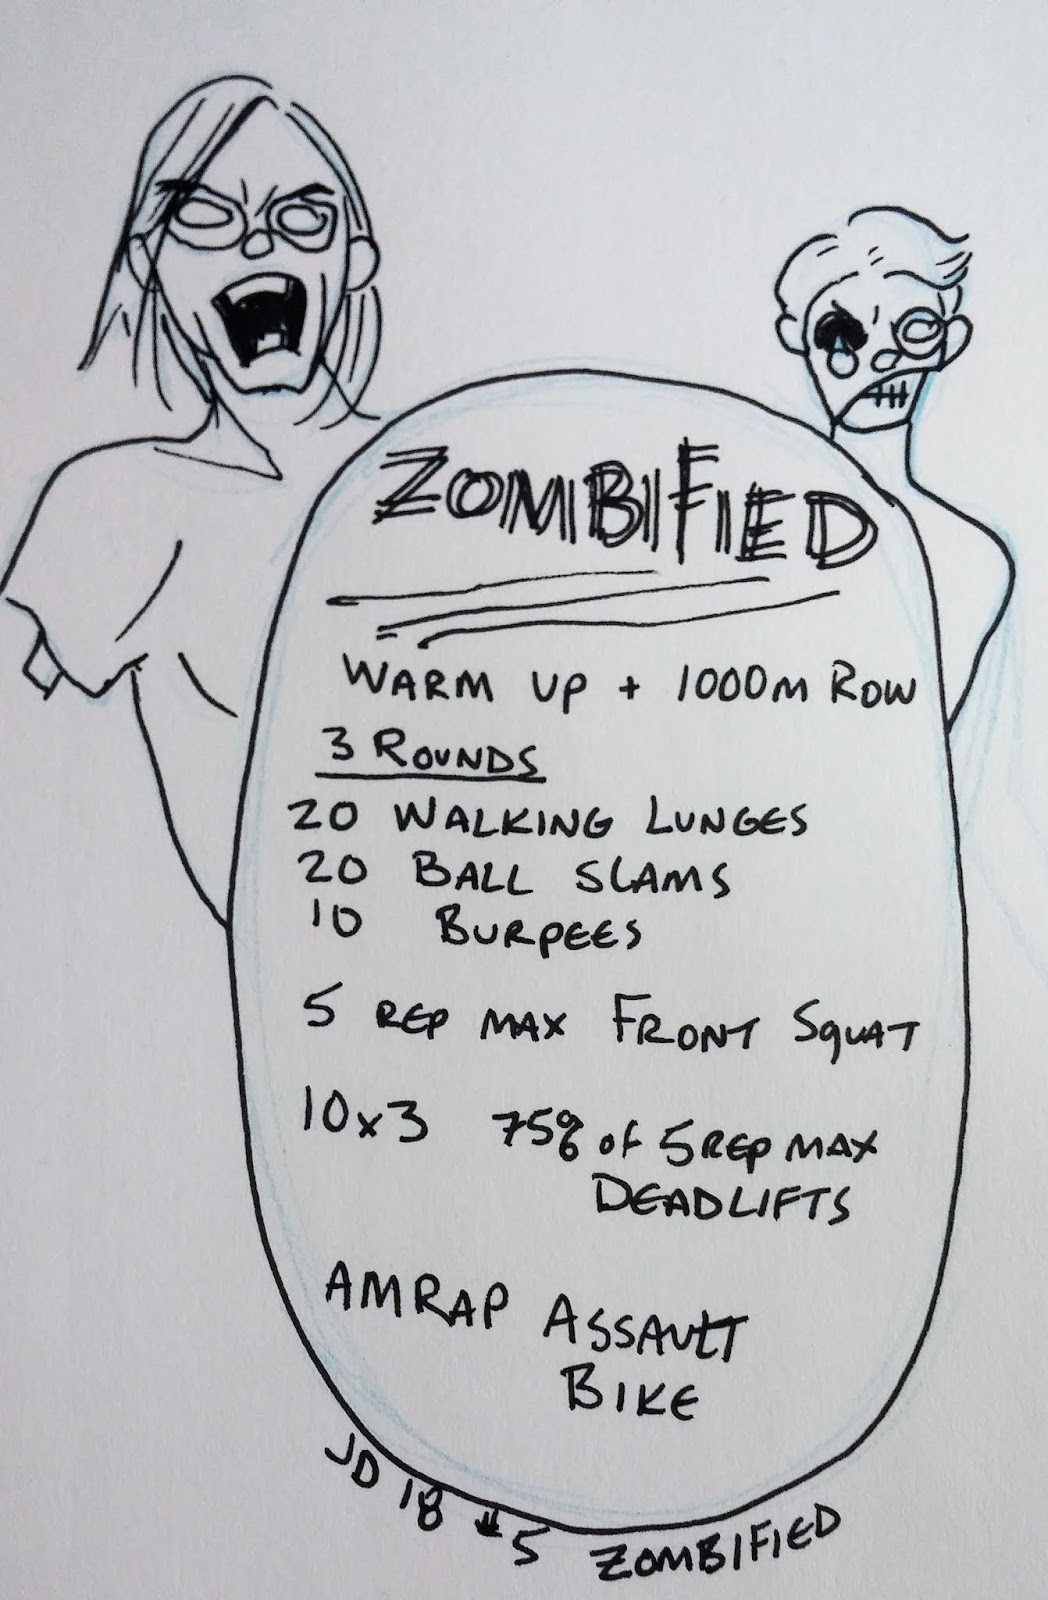 ZOMBIFIED
WARM UP + 1000M ROW
3 ROUNDS
20 WALKING LUNGES
20 BALL SLAMS
10 BURPEES
5 REP MAX FRONT SQUAT
10x3 75% of 5 REP MAX
DEADLIFTS
AMRAP ASSAULT
BIKE
JD 18 #5 ZOMBIFIED